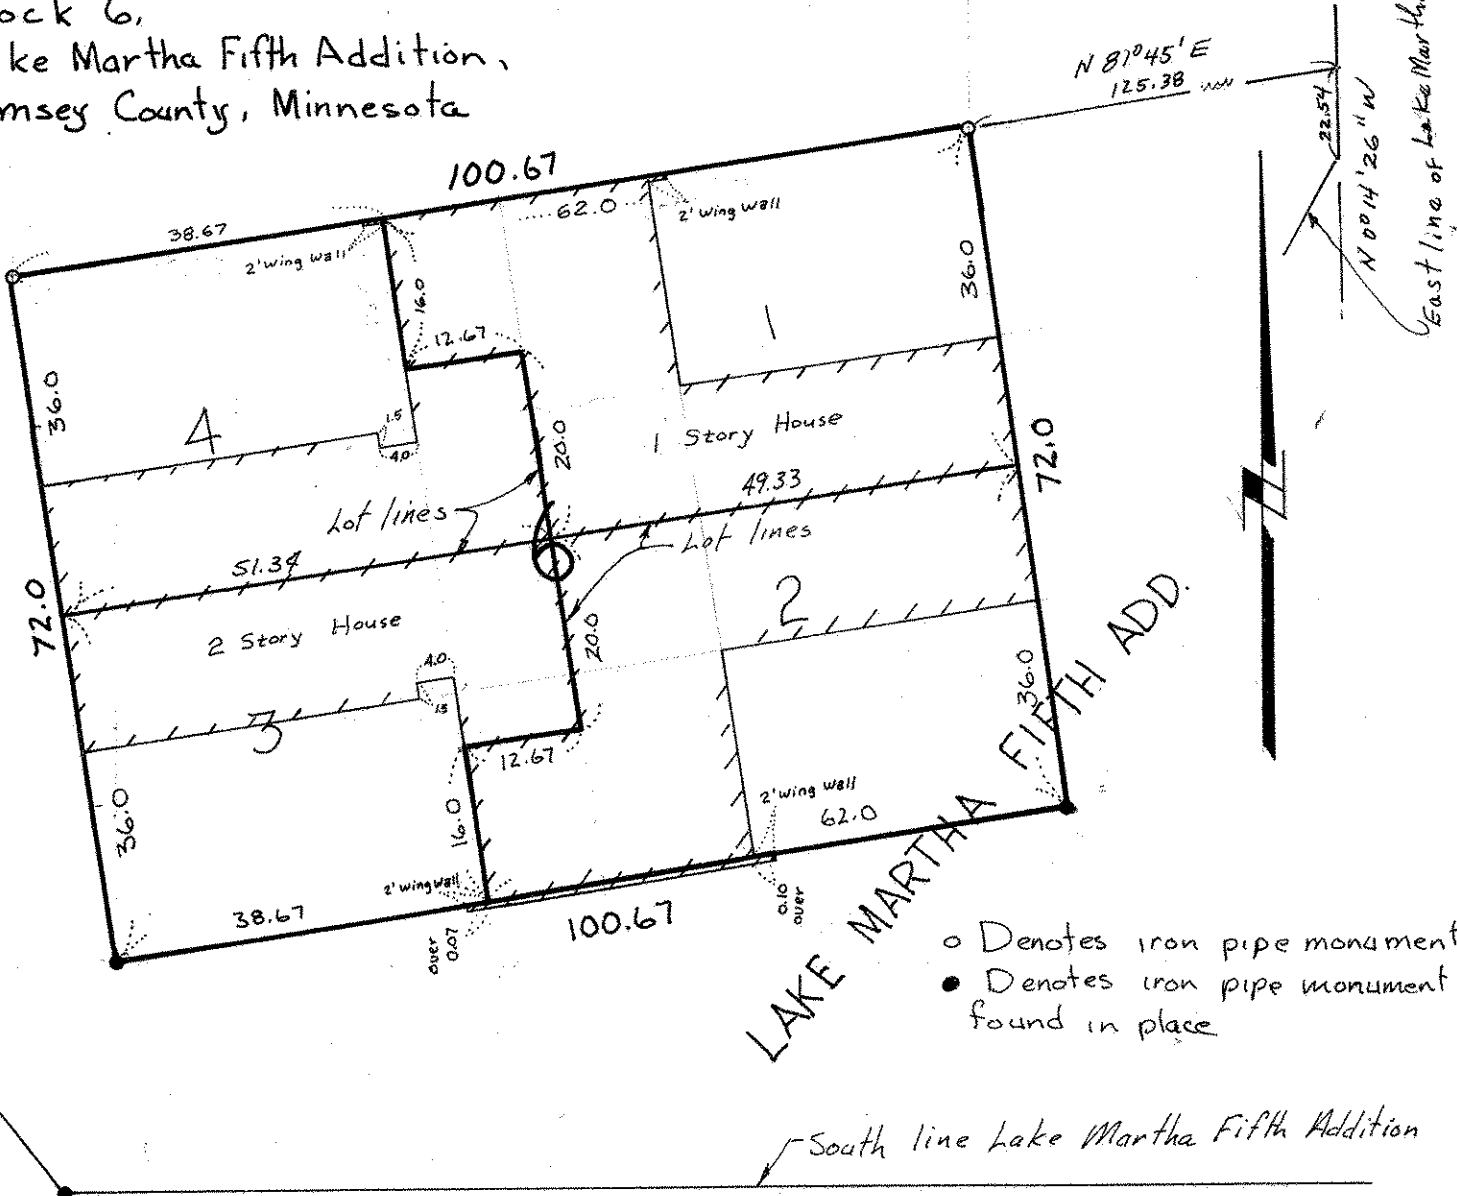 ock 6,
ke Martha Fifth Addition,
msey County, Minnesota
N 81°45' E
125.38
22.54
N 0°14'26" W
East line of Lake Martha
100.67
38.67
62.0
2' wing wall
2' wing wall
16.0
36.0
12.67
1
36.0
4
1.5
4.0
20.0
1 Story House
72.0
49.33
Lot lines
Lot lines
51.34
6
72.0
2 Story House
2
4.0
1.5
20.0
36.0
3
12.67
2' wing wall
62.0
36.0
16.0
2' wing wall
38.67
100.67
over
0.07
0.10
over
LAKE MARTHA FIFTH ADD.
o Denotes iron pipe monument
● Denotes iron pipe monument
found in place
South line Lake Martha Fifth Addition